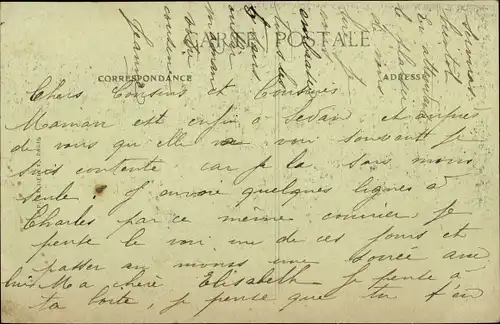 CARTE POSTALE
CORRESPONDANCE
ADRESSE
Chers Cousins et Cousines
Maman est enfin à Sedan et auprès
de vous qu'elle va voir souvent je
suis contente car je la sais moins
seule. J'envoie quelques lignes à
Charles par ce même courrier. Je
pense le voir un de ces jours et
passer au moins une soirée avec
lui. Ma chère Elisabeth je pense à
ta boîte, je pense que tu t'en
serviras
bientôt
En attendant
le plaisir
de
Jeanne